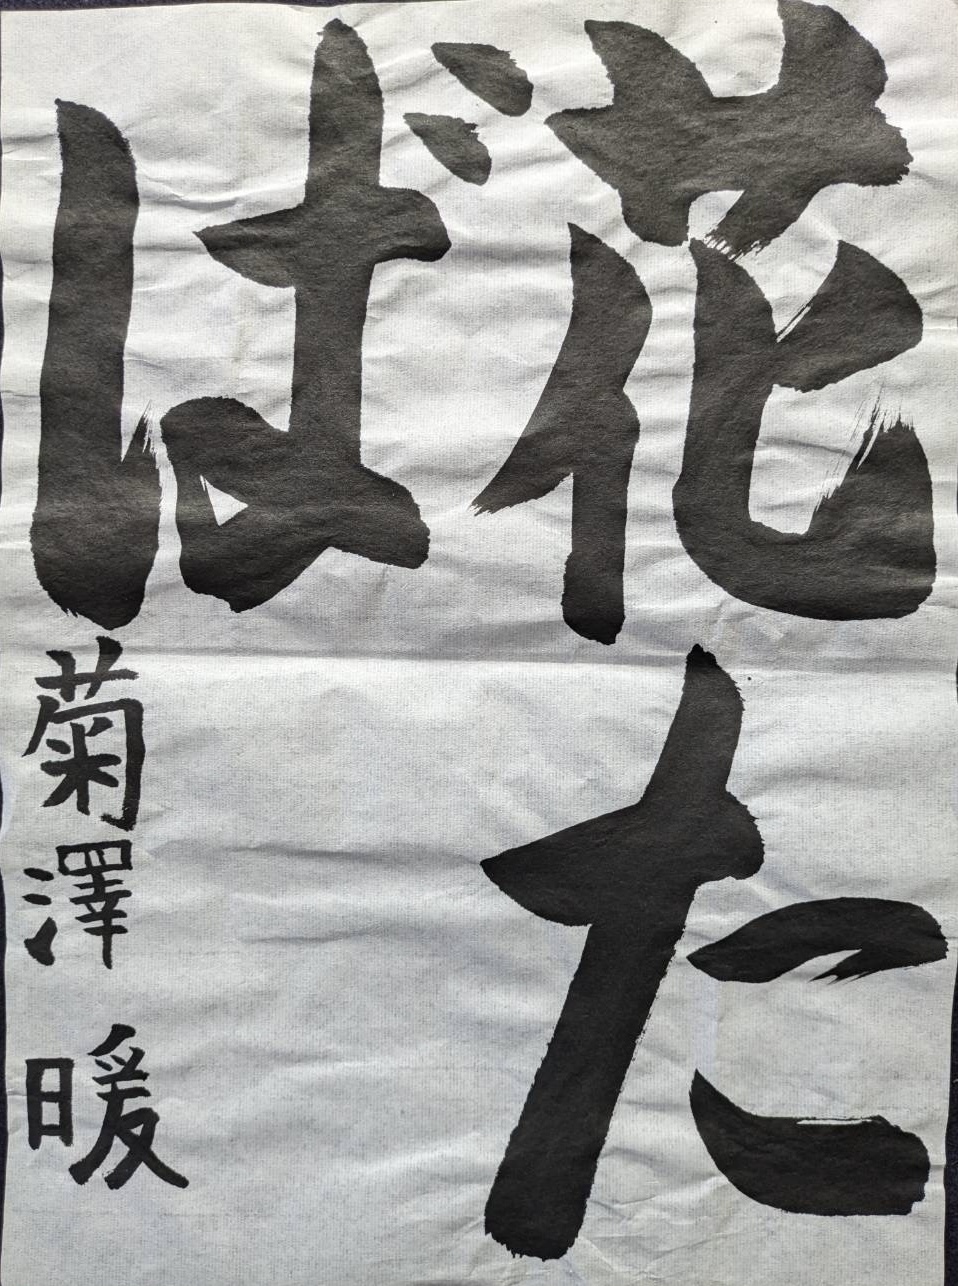 花た
ば
菊澤 暖